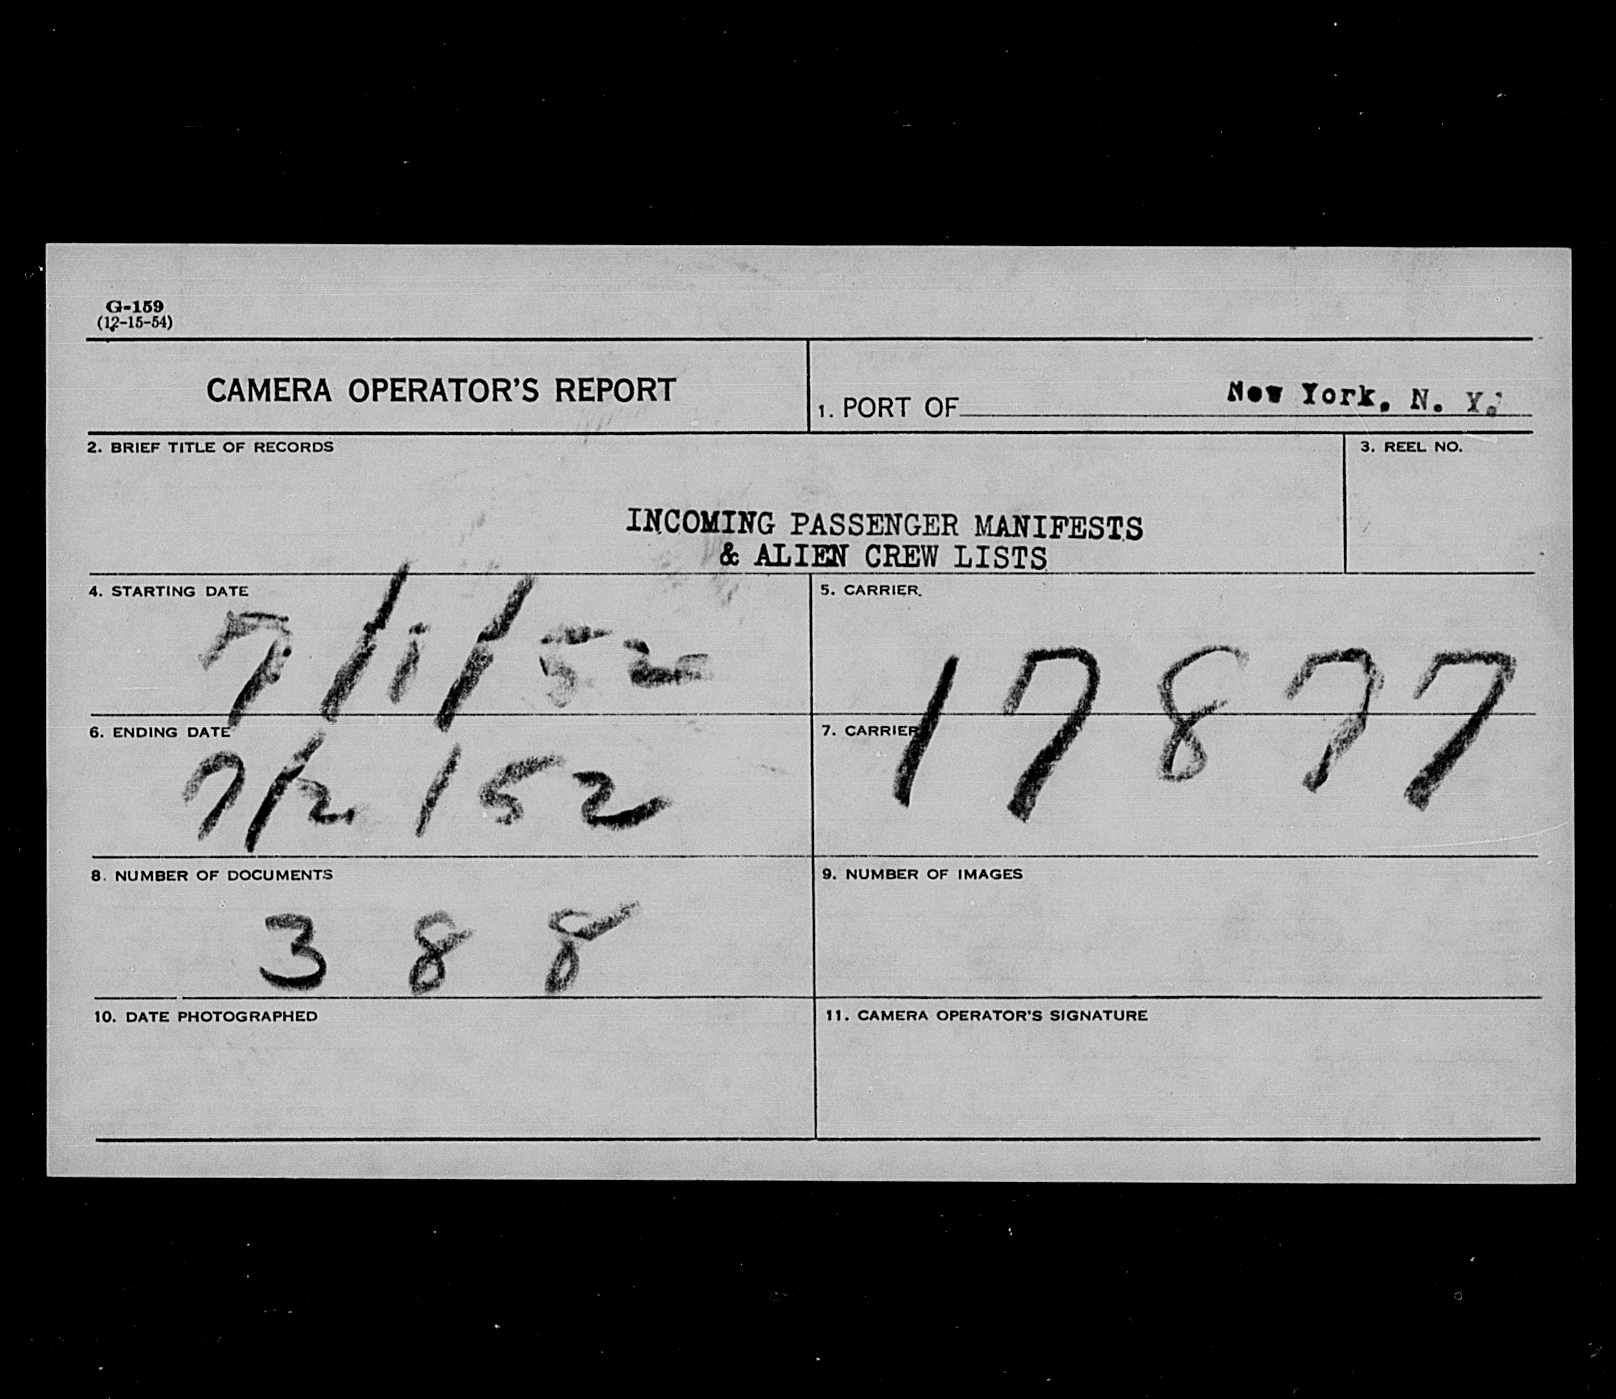 G-159
(12-15-54)
CAMERA OPERATOR'S REPORT
1. PORT OF New York, N. Y.
2. BRIEF TITLE OF RECORDS
3. REEL NO.
INCOMING PASSENGER MANIFESTS
& ALIEN CREW LISTS
4. STARTING DATE
7/1/52
5. CARRIER
17877
6. ENDING DATE
7/2/52
7. CARRIER
8. NUMBER OF DOCUMENTS
388
9. NUMBER OF IMAGES
10. DATE PHOTOGRAPHED
11. CAMERA OPERATOR'S SIGNATURE